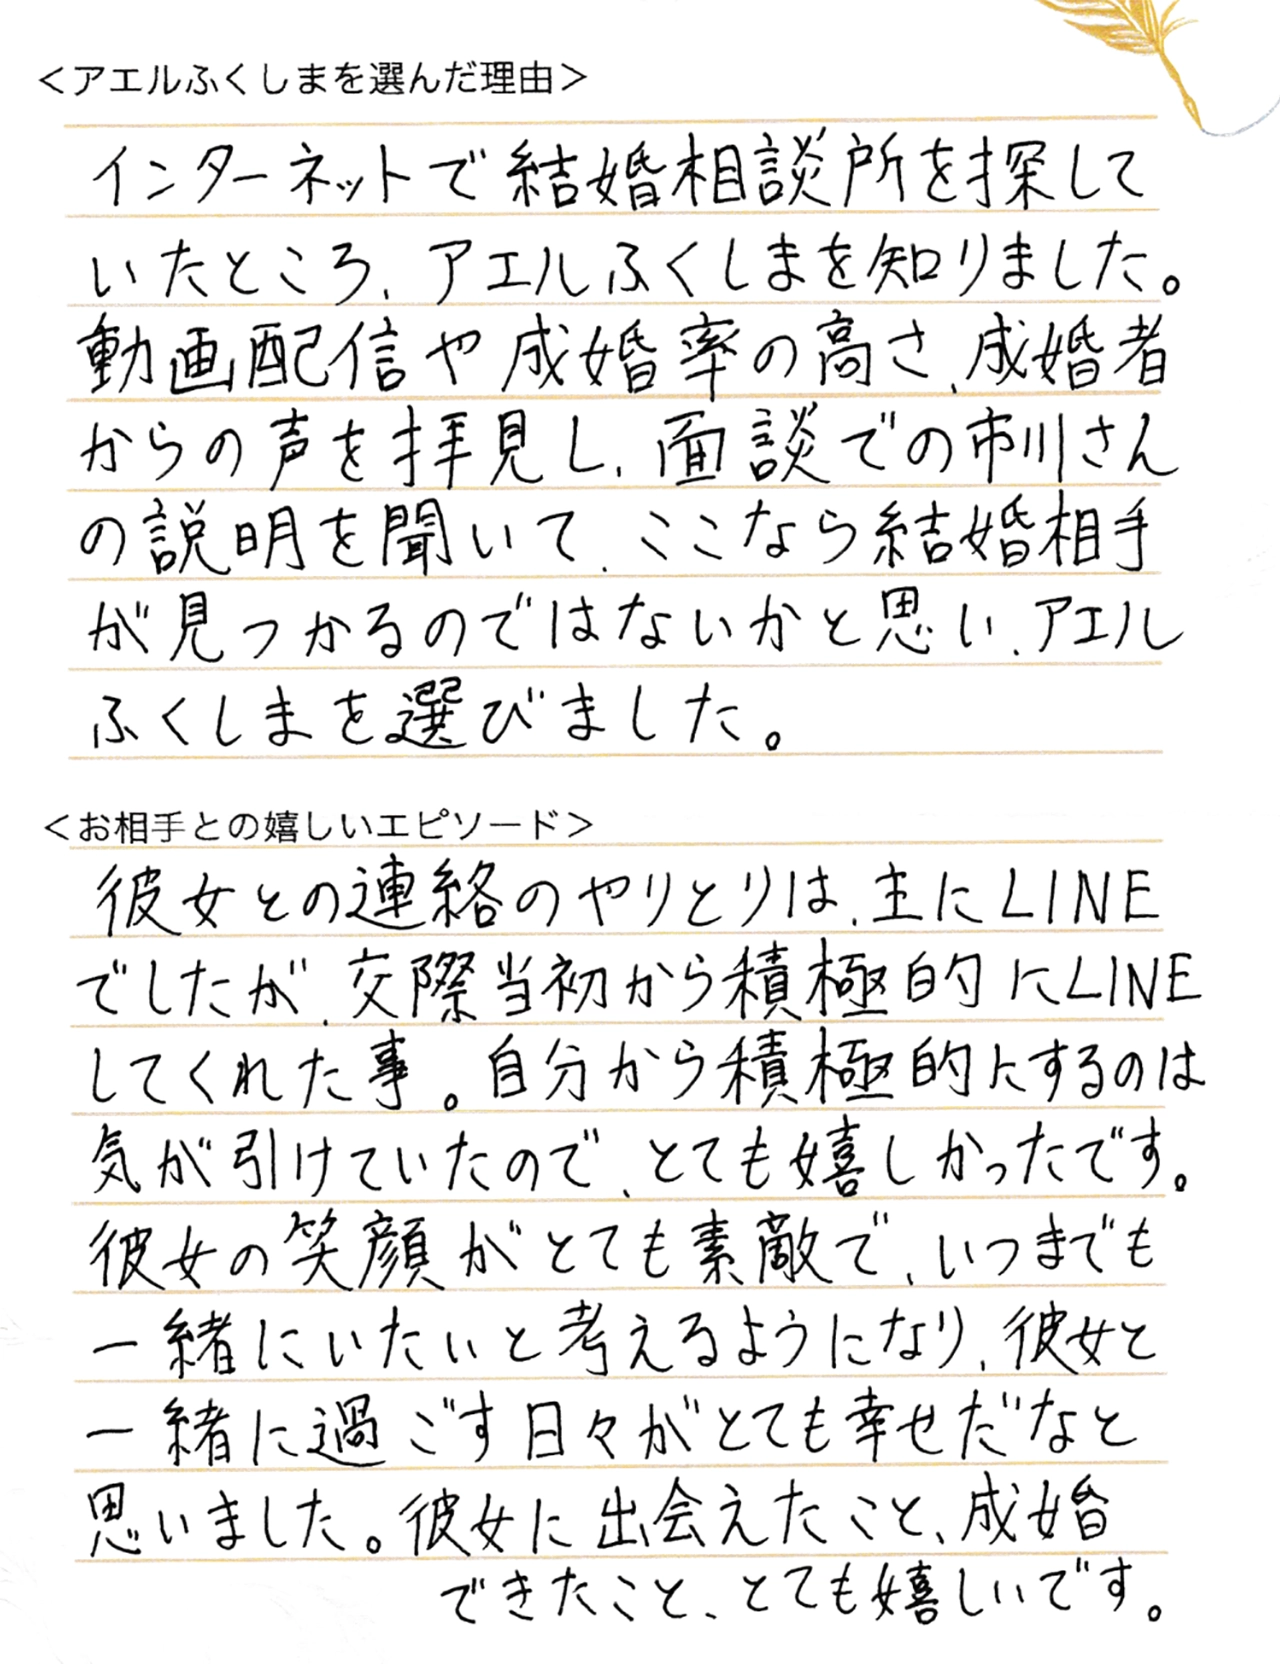 ＜アエルふくしまを選んだ理由＞
インターネットで結婚相談所を探して
いたところ、アエルふくしまを知りました。
動画配信や成婚率の高さ、成婚者
からの声を拝見し、面談での市川さん
の説明を聞いて、ここなら結婚相手
が見つかるのではないかと思い、アエル
ふくしまを選びました。
＜お相手との嬉しいエピソード＞
彼女との連絡のやりとりは、主にLINE
でしたが、交際当初から積極的にLINE
してくれた事。自分から積極的にするのは
気が引けていたので、とても嬉しかったです。
彼女の笑顔がとても素敵で、いつまでも
一緒にいたいと考えるようになり、彼女と
一緒に過ごす日々がとても幸せだなと
思いました。彼女に出会えたこと、成婚
できたこと、とても嬉しいです。